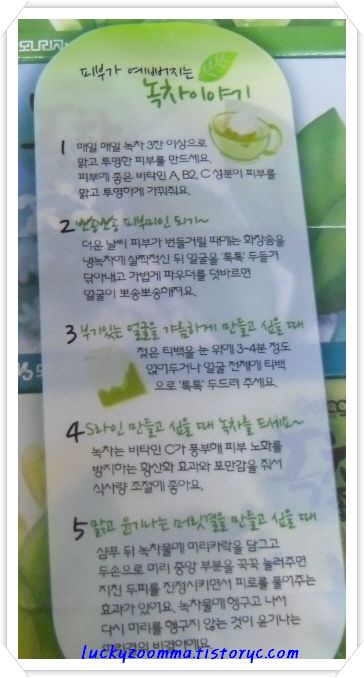 모나리자
피부가 예뻐지는
녹차이야기
1 매일 매일 녹차 3잔 이상으로
맑고 투명한 피부를 만드세요.
피부에 좋은 비타민 A, B2, C 성분이 피부를
맑고 투명하게 가꿔줘요.
2 뽀송뽀송 피부미인 되기~
더운 날씨 피부가 번들거릴 때에는 화장솜을
냉녹차에 살짝적신 뒤 얼굴을 '톡톡' 두들겨
닦아내고 가볍게 파우더를 덧바르면
얼굴이 뽀송뽀송해져요.
3 부기있는 얼굴을 갸름하게 만들고 싶을 때
젖은 티백을 눈 위에 3~4분 정도
얹어두거나 얼굴 전체에 티백
으로 '톡톡' 두드려 주세요.
4 S라인 만들고 싶을 때 녹차를 드세요~
녹차는 비타민 C가 풍부해 피부 노화를
방지하는 황산화 효과와 포만감을 줘서
식사량 조절에 좋아요.
5 맑고 윤기나는 머릿결을 만들고 싶을 때
샴푸 뒤 녹차물에 머리카락을 담그고
두손으로 머리 중앙 부분을 꾹꾹 눌러주면
지친 두피를 진정시키면서 피로를 풀어주는
효과가 있어요. 녹차물에 헹구고 나서
다시 머리를 헹구지 않는 것이 윤기나는
머릿결의 비결이에요.
luckyzoomma.tistoryc.com